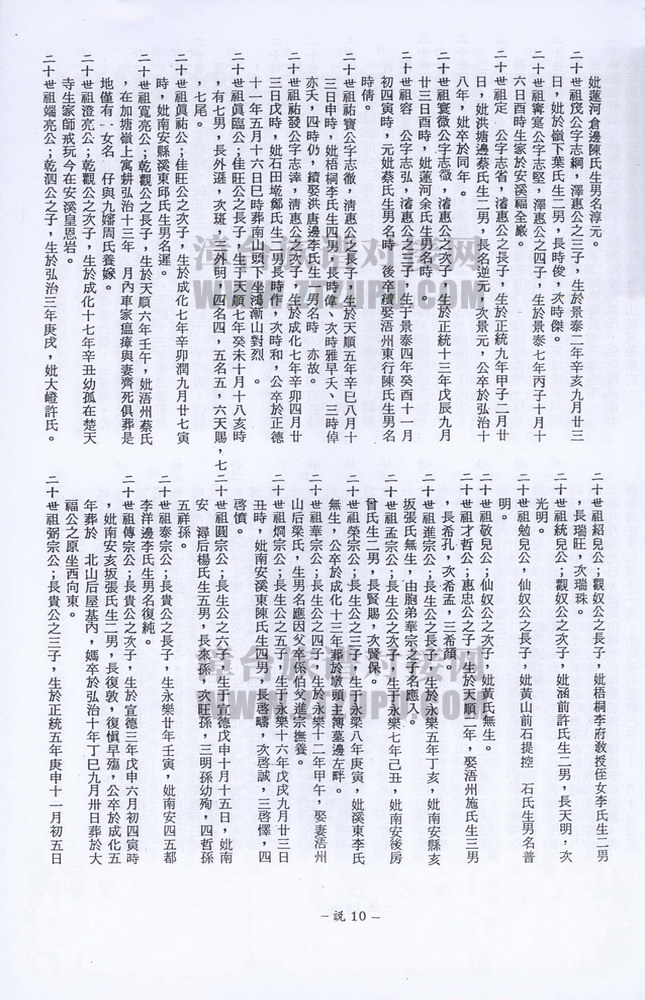 妣蓮河倉邊陳氏生男名淳元。
二十世祖茂公字志綱，澤惠公之三子，生於景泰二年辛亥九月廿三
日，妣於嶺下葉氏生二男，長時俊，次時傑。
二十世祖騫寔公字志堅，澤惠公之四子，生於景泰七年丙子十月十
六日酉時生家於安溪福全巖。
二十世祖定　公字志省，濬惠公之長子，生於正統九年甲子二月廿
日，妣洪塘邊蔡氏生二男，長名逆元，次景元，公卒於弘治十
八年，妣卒於同年。
二十世祖寰微公字志澂，濬惠公之次子，生於正統十三年戊辰九月
廿三日酉時，妣蓮河余氏生男名時　。
二十世祖容　公字志弘，濬惠公之三子，生于景泰四年癸酉十一月
初四寅時，元妣蔡氏生男名時　後卒續娶浯州東行陳氏生男名
時倩。
二十世祖祐寶公字志徹，清惠公之長子，生於天順五年辛巳八月十
三日申時，妣梧桐李氏生四男，長時偉、次時雅早夭、三時倬
亦夭，四時仍，續娶洪唐邊李氏生二男名時　亦故。
二十世祖祐發公字志澾，清惠公之次子，生於成化七年辛卯四月廿
三日戊時，妣石田墩鄭氏生二男長時作，次時和，公卒於正德
十一年五月十六日巳時葬南山頭下坐鴻漸山對烈　。
二十世祖眞臨公；佳旺公之長子，生于天順七年癸未十月十八亥時
，有七男，長外遜，次班，三外明，四名四，五名五，六天賜，七
，七尾。
二十世祖眞祐公；佳旺公之次子，生於成化七年辛卯潤九月廿七寅
時，妣南安縣溪東邱氏生男名遲。
二十世祖寬亮公；乾觀公之長子，生於天順六年壬午，妣浯州蔡氏
，在加塘嶺上寓耕弘治十三年　月內車家瘟瘴與妻齊死俱葬是
地僅有　女名　仔與九嬸周氏養嫁。
二十世祖澄亮公；乾觀公之次子，生於成化十七年辛丑幼孤在楚天
寺生家師戒玩今在安溪皇恩岩。
二十世祖端亮公；乾泗公之子，生於弘治三年庚戌，妣大嶝許氏。
二十世祖紹兒公；觀奴公之長子，妣梧桐李府教授侄女李氏生二男
，長瑞旺，次瑞珠。
二十世祖統兒公；觀奴公之次子，妣涵前許氏生二男，長天明，次
光明。
二十世祖勉兒公，仙奴公之長子，妣黃山前石提控　石氏生男名普
明。
二十世祖敬兒公；仙奴公之次子，妣黃氏無生。
二十世祖才哲公；惠忠公之子，生於天順二年，娶浯州施氏生三男
，長希孔，次希孟，三希顔。
二十世祖進宗公；長生公之長子，生於永樂五年丁亥，妣南安縣亥
坂張氏無生，由胞弟華宗之子名應入。
二十世祖孟宗公；長生公之次子，生于永樂七年己丑，妣南安後房
曾氏生二男，長賢賜，次賢保。
二十世祖榮宗公；長生公之三子，生于永樂八年庚寅，妣溪東李氏
無生，公卒於成化十三年葬於墩頭主簿墓邊左畔。
二十世祖華宗公；長生公之四子，生於永樂十二年甲午，娶妻浯州
山后梁氏，生男名應因父卒係伯父進宗撫養。
二十世祖烱宗公；長生公之五子，生于永樂十六年戊戌九月廿三日
丑時，妣南安溪東陳氏生四男，長啓疇，次啓誠，三啓懌，四
啓憤。
二十世祖圓宗公；長生公之六子，生于宣德戊申十月十五日，妣南
安　潯后楊氏生五男，長來孫，次旺孫，三明孫幼殉，四哲孫
五祥孫。
二十世祖泰宗公；長貴公之長子，生永樂廿年壬寅，妣南安四五都
李洋邊李氏生男名復純。
二十世祖傳宗公；長貴公之次子，生於宣德三年戊申六月初四寅時
，妣南安亥坂張氏生二男，長復敦，復愼早殤，公卒於成化五
年葬於　北山后屋基內，媽卒於弘治十年丁巳九月卅日葬於大
福公之原坐西向東。
二十世祖弼宗公；長貴公之三子，生於正統五年庚申十一月初五日
－説 10－
漳台族谱对接网
WWW.ZTZUPU.COM
漳台族谱对接网
WWW.ZTZUPU.COM